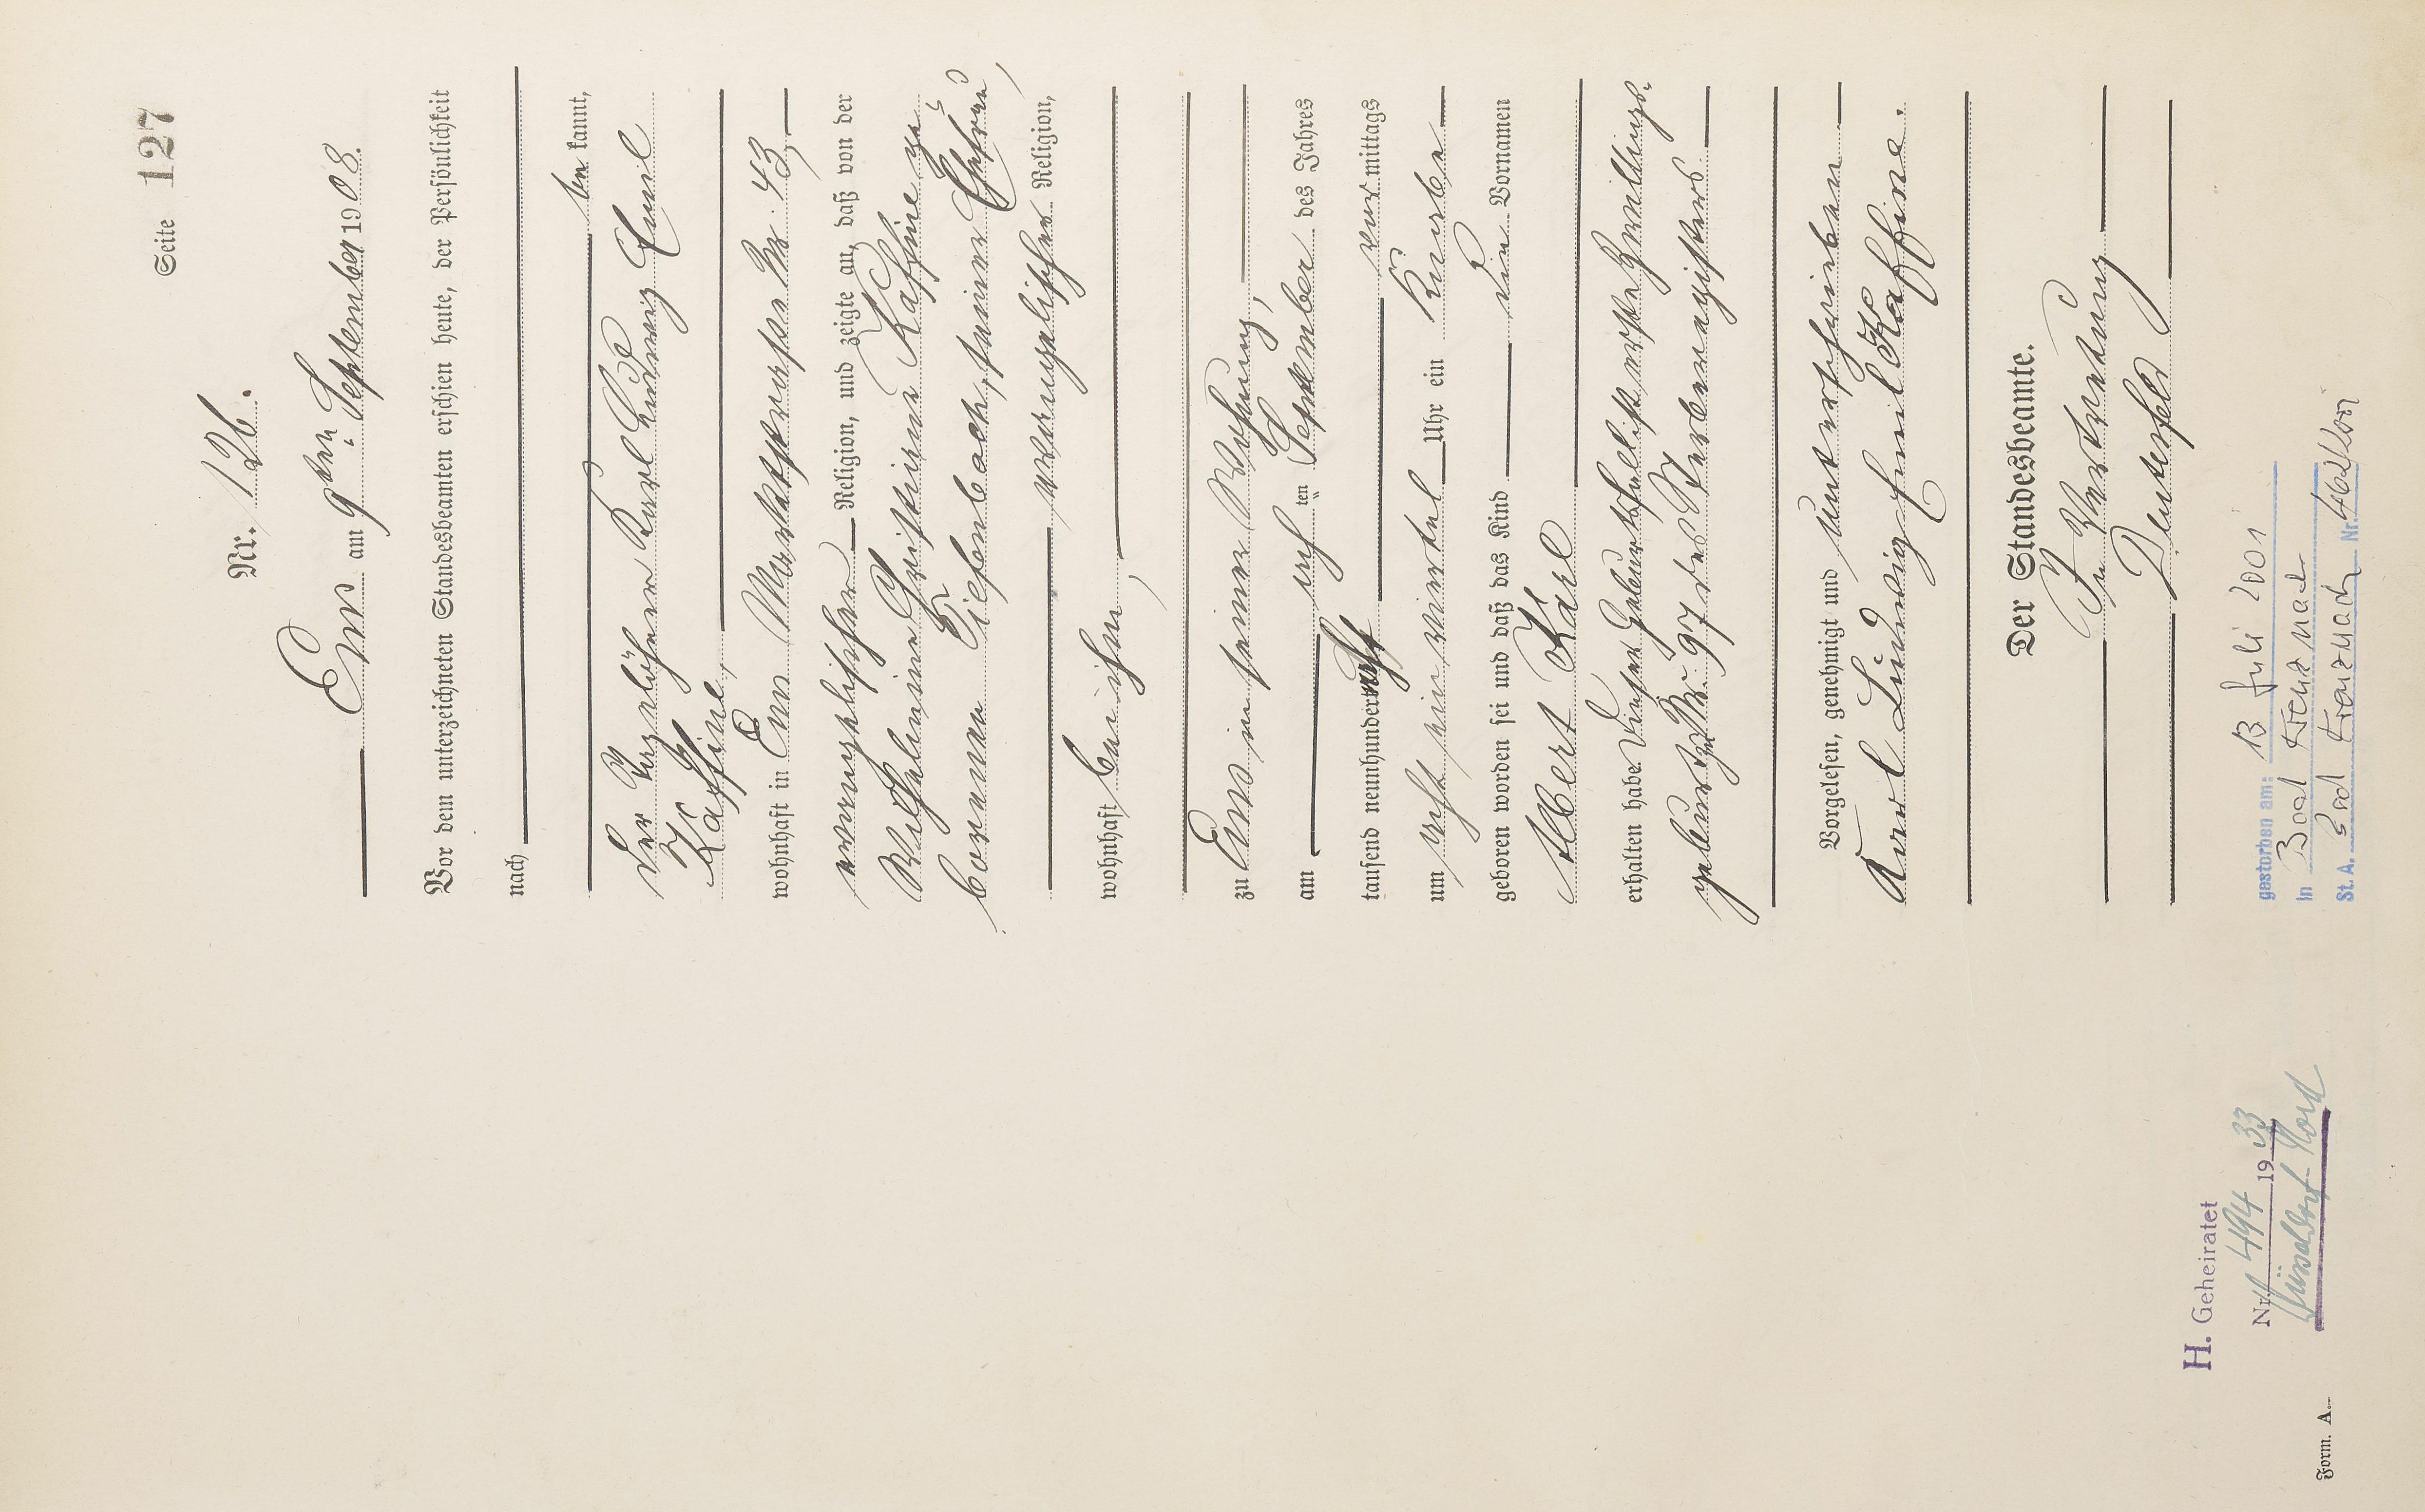 Seite 127
Nr. 126.
Ems am 9ten September 1908.
Vor dem unterzeichneten Standesbeamten erschien heute, der Persönlichkeit
nach
be kannt,
der Karl Ludwig Emil
Käffine,
wohnhaft in Ems Marktstrasse No. 43,
evangelischer Religion, und zeigte an, daß von der
Wilhelmine Christiane Käffine ge-
borenen Tiefenbach, seiner Ehefrau,
evangelischer Religion,
wohnhaft bei ihm,
zu Ems in seiner Wohnung,
am acht ten September des Jahres
tausend neunhundert acht vor mittags
um acht ein viertel Uhr ein Knabe
geboren worden sei und daß das Kind die Vornamen
Albert Karl
erhalten habe. Dieser Geburtsfall ist erste Zwillings-
geburt zu No. 97 des Sterberegisters.
Vorgelesen, genehmigt und unterschrieben
Karl Ludwig Emil Käffine.
Der Standesbeamte.
In Vertretung
gestorben am: 13 Juli 2001
in Bad Kreuznach
St. A. Bad Kreuznach Nr. 462/2001
H. Geheiratet
Nr. 494 1933
Düsseldorf-Nord
Form. A.